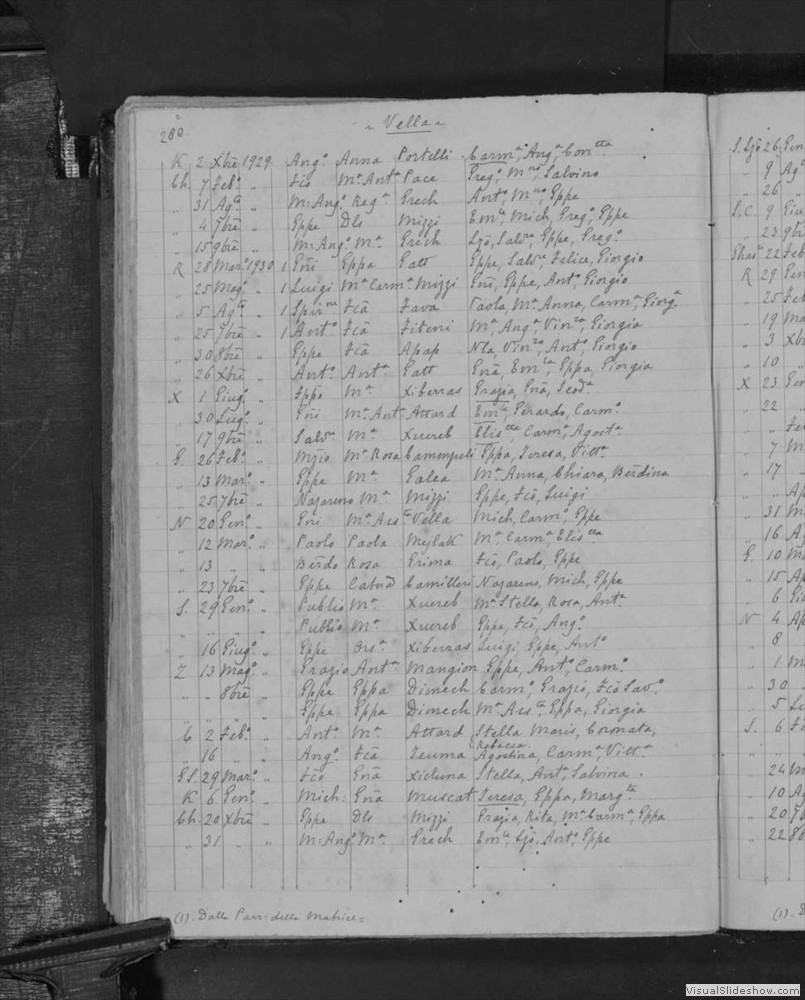 280
„ Vella „
K 2 Xbre 1929. Ang.o Anna Portelli Carm.a, Ang.a, Con.tta
Ch. 7 Feb.o „ Fco M.a Ant.a Pace Greg.o, M.no, Salvino
„ 31 Ag.to „ M: Ang.o Reg.a Grech Ant.o, M.no, Eppe
„ 4 7bre „ Eppe Dls Mizzi Em.le, Mich, Greg.o, Eppe
„ 15 9bre „ M: Ang.o M.a Grech Ljo, Salv.re, Eppe, Greg.o
R 28 Mar.o 1930 1 Gni Eppa Gatt Eppe, Salv.re, Felice, Giorgio
„ 25 Mag.o „ 1 Luigi M.a Carm.a Mizzi Gni, Eppe, Ant.o, Giorgio
„ 5 Ag.to „ 1 Spir.ne Fca Fava Paola, M.a Anna, Carm.a, Giorg.a
„ 25 7bre „ 1 Ant.o Fca Fiteni M.a, Ang.a, Vin.za, Giorgia
„ 30 8bre „ Eppe Fca Apap Nla, Vin.zo, Ant.o, Giorgio
„ 26 Xbre „ Ant.o Ant.a Gatt Gna, Em.la, Eppa, Giorgia
X 1 Giug.o „ Fppo M.a Xiberras Grazia, Gna, Teod.a
„ 30 Lug.o „ Gni M.a Ant.a Attard Em.le, Gerardo, Carm.o
„ 17 9bre „ Salv.re M.a Xuereb Elis.tta, Carm.a, Agost.a
G. 26 Feb.o „ Mzio M.a Rosa Camenzuli Eppa, Teresa, Vitt.a
„ 13 Mar.o „ Eppe M.a Galea M.a Anna, Chiara, Berdina
„ 25 7bre „ Nazareno M.a Mizzi Eppe, Fco, Luigi
N 20 Gen.o „ Gni M.a Ass.ta Vella Mich, Carm.o, Eppe
„ 12 Mar.o „ Paolo Paola Mejlak M.a Carm.a Elis.tta
„ 13 „ „ Berdo Rosa Grima Fco, Paolo, Eppe
„ 23 7bre „ Eppe Catna Camilleri Nazareno, Mich, Eppe
S. 29 Gen.o „ Publio M.a Xuereb M.a Stella, Rosa, Ant.a
„ „ „ „ Publio M.a Xuereb Eppe, Fco, Ang.o
„ 16 Giug.o „ Eppe Ors.a Xiberras Luigi, Eppe, Ant.o
Z 13 Mag.o „ Grazio Ant.a Mangion Eppe, Ant.o, Carm.o
„ „ 8bre „ Eppe Eppa Dimech Carm.o, Grazio, Fco Sav.o
„ „ „ „ Eppe Eppa Dimech M.a Ass.ta, Eppa, Giorgia
C 2 Feb.o „ Ant.o M.a Attard Stella Maris, Coronata,
Rebecca
„ 16 „ „ Ang.o Fca Zeuma Agostina, Carm.a, Vitt.a
GS. 29 Mar.o „ Fco Gna Xicluna Stella, Ant.a, Salvina.
K 6 Gen.o „ Mich: Gna Muscat Teresa, Eppa, Marg.ta
Ch. 20 Xbre „ Eppe Dls Mizzi Grazia, Rita, M.a Carm.a, Eppa
„ 31 „ „ M: Ang.o M.a Grech Em.le, Ljo, Ant.o, Eppe
(1). Dalla Parr. della Matrice
S. Ljo 26 Gen
„ 9 Ag
„ 26 „
S.C. 9 Giu
„ 23 9br
22 Feb
R 29 Gen
„ 25 Feb
„ 19 Ma
„ 3 Xbr
„ 10 „
X 23 Gen
„ 22
„ Fe
7 M
„ 17 „
„ „ Ap
„ 31 M
„ 16 A
G. 10 M
„ 15 Ap
„ 6 Gi
N 4 Ap
„ 8
„ 1 M
„ 30
„ 5 Lu
S. 6 Fe
„ 24 M
„ 10 A
„ 20 7b
„ 22 8b
(1). D
VisualSlideshow.com